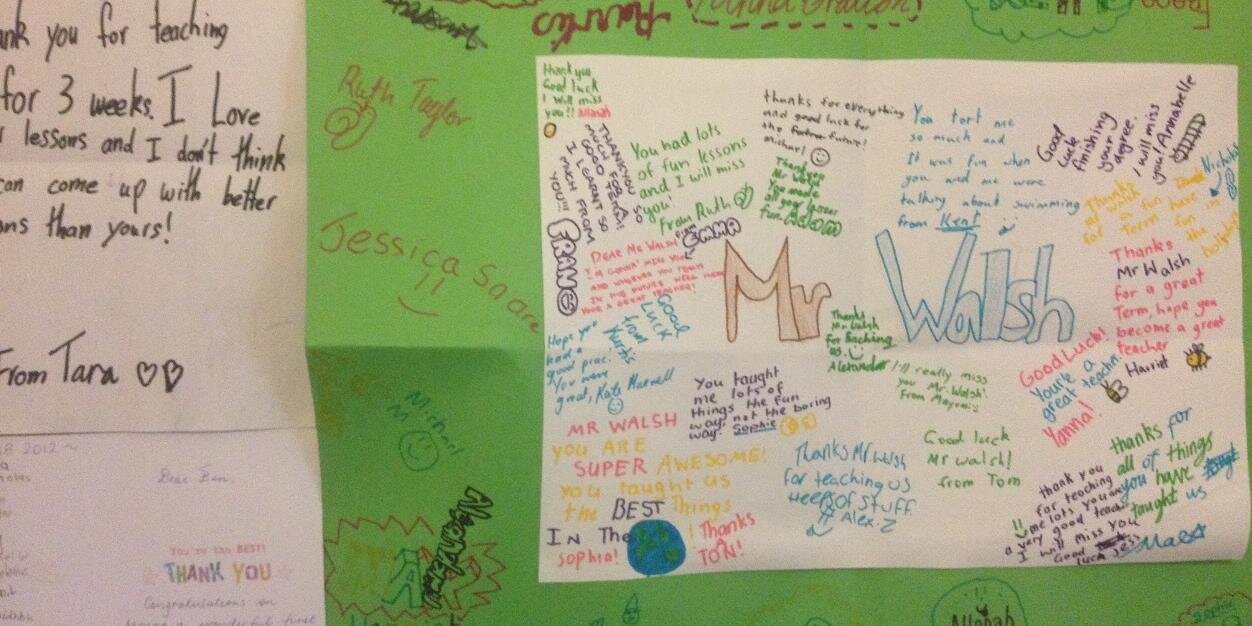 nk you for teaching
for 3 weeks. I Love
lessons and I don't think
can come up with better
ns than yours!
From Tara
2012
Dear Ben,
BEST!
THANK YOU
Congratulations on
Ruth Taylor
Jessica Saare
Michael
M
thank you
Good luck
I will miss
you!!
THANKYOU SO
MUCH FOR A
GOOD TERM!
I LEARNT SO
MUCH FROM
YOU!!!
FRANC
You had lots
of fun lessons
and I will miss
you!
From Ruth
thanks for everything
and good luck for
the future!
michael
Thankyou
Mr Walsh
You made
all your lesson
fun.
You tort me
so much and
It was fun when
you and me were
talking about swimming
from Kent
Good
Luck
finishing
your
degree.
I will miss
you! Annabelle
Nichola
Thanks
Mr Walsh
for a fun
Term have
fun in
the
holidays
from
EMMA
DEAR MR WALSH
I'M GONNA' MISS YOU
Mr Walsh
Good
LUCK
from
Kurtis
Hope you
had a
good prac!
You were
great, Kate Maxwell
Thanks
Mr Walsh
for teaching
us.
Alexander
I'll really miss
you Mr. Walsh!
From Mayumi
Thanks
Mr Walsh
for a great
Term, hope you
become a great
teacher
Harriet
Good Luck!
You're a
great teacher.
Yanna!
You taught
me lots of
things the fun
way, not the boring
way. Sophie
MR WALSH
you ARE
SUPER AWESOME!
you taught us
the BEST Things
IN The !
Sophia!
Thanks
A
TON!
Thanks Mr. Walsh
for teaching us
HeepsOf Stuff
Alex.Z
Good luck
Mr walsh!
from Tom
thank you
for teaching
me lots you are
a very good teacher
I will miss you
Good
luck Jess
thanks for
all of things
you have
taught us
Allahah
Sophie